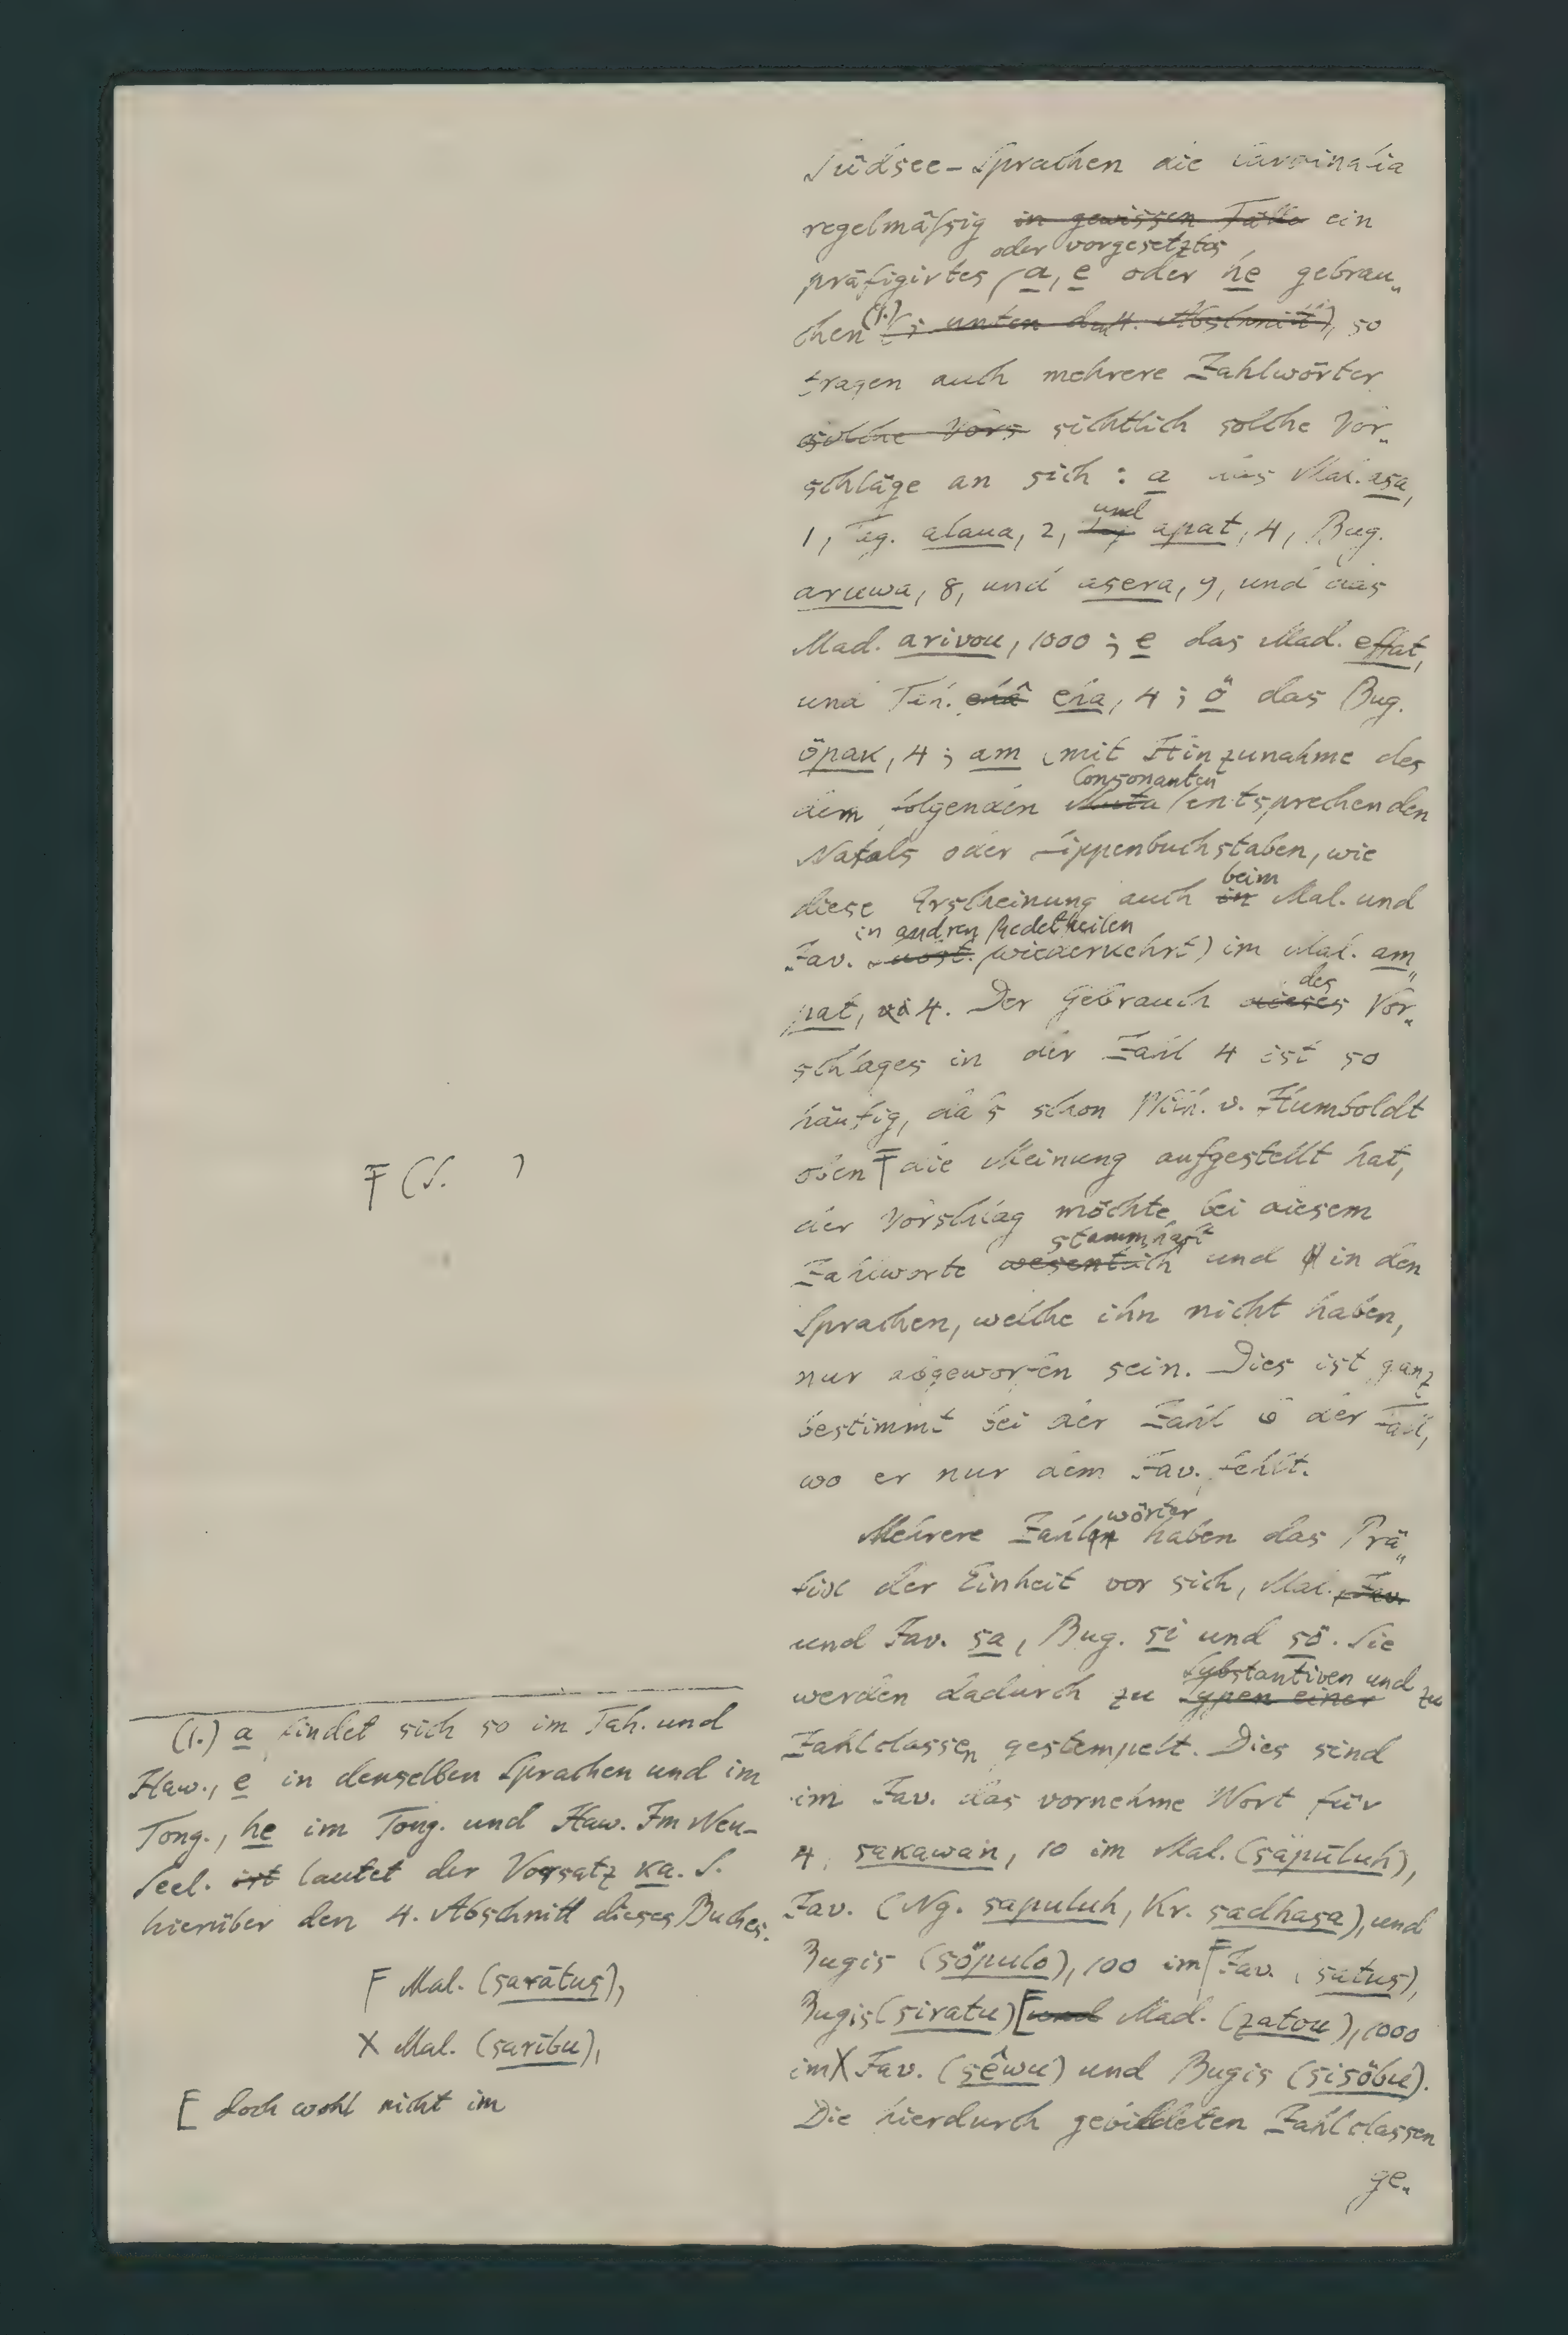 Südsee-Sprachen die Cardinalia
regelmäſsig in gewissen Fälle ein
oder vorgesetztes
präfigirtes a, e oder he gebrau„
chen (1.) (s. unten d. 4. Abschnitt), so
tragen auch mehrere Zahlwörter
solche Vors sichtlich solche Vor„
schläge an sich : a das Mal. asa,
und
1, Tag. alaua, 2, apat, 4, Bug.
aruwa, 8, und asera, 9, und das
Mad. arivou, 1000 ; e das Mad. effat,
und Tah. ehâ eha, 4 ; ö das Bug.
öpak, 4 ; am (mit Hinzunahme des
Consonanten
dem folgenden Muta entsprechenden
Nasals oder Lippenbuchstaben, wie
beim
diese Erscheinung auch in Mal. und
in andren Redetheilen
Jav. wiederkehrt) im Mal. am„
des
pat, 4. Der Gebrauch dieses Vor„
schlages in der Zahl 4 ist so
häufig, daſs schon Wilh. v. Humboldt
oben F die Meinung aufgestellt hat,
der Vorschlag möchte bei diesem
stammhaft
Zahlworte wesentlich und in den
Sprachen, welche ihn nicht haben,
nur abgeworfen sein. Dies ist ganz
bestimmt bei der Zahl der Fall,
wo er nur dem Jav. fehlt.
wörter
Mehrere Zahlen haben das Prä„
fix der Einheit vor sich, Mal. Jav.
und Jav. sa, Bug. si und sö. Sie
Substantiven und
werden dadurch zu Typen einer zu
Zahlclassen gestempelt. Dies sind
im Jav. das vornehme Wort für
4, sakawan, 10 im Mal. (säpūluh),
Jav. (Ng. sapuluh, Kr. sadhasa), und
Bugis (söpulo), 100 im F Jav. (satus),
Bugis (siratu) [und Mad. (zatou), 1000
im X Jav. (sêwu) und Bugis (sisöbu).
Die hierdurch gebildeten Zahlclassen
ge„
F (S. )
(1.) a findet sich so im Tah. und
Haw., e in denselben Sprachen und im
Tong., he im Tong. und Haw. Im Neu-
Seel. ist lautet der Vorsatz ka. S.
hierüber den 4. Abschnitt dieses Buches.
F Mal. (sarātus),
X Mal. (sarību),
[ doch wohl nicht im